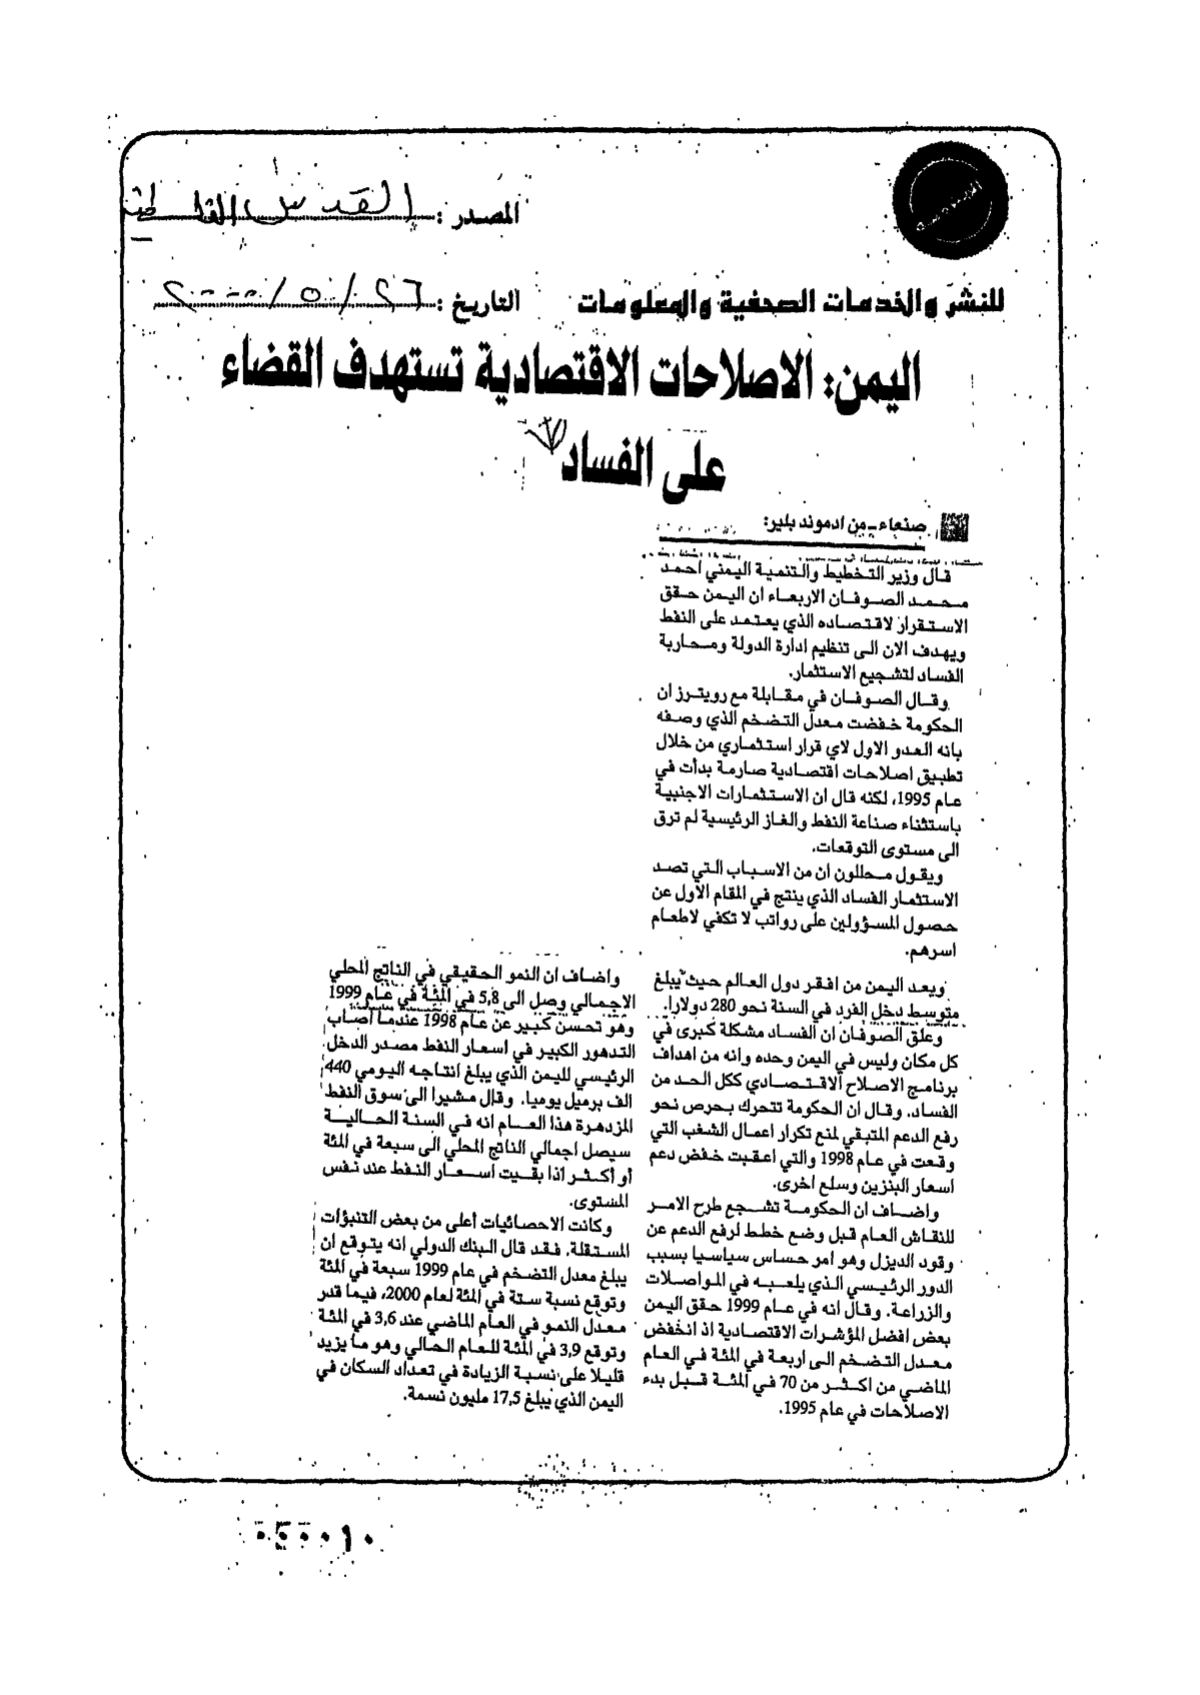 المصدر: القدس
للنشر والخدمات الصحفية والمعلومات
التاريخ: ٢٦/٥/٢٠٠٠
اليمن: الاصلاحات الاقتصادية تستهدف القضاء
على الفساد
صنعاء - من ادموند بلير:
قال وزير التخطيط والتنمية اليمني احمد
محمد الصوفان الاربعاء ان اليمن حقق
الاستقرار لاقتصاده الذي يعتمد على النفط
ويهدف الان الى تنظيم ادارة الدولة ومحاربة
الفساد لتشجيع الاستثمار.
وقال الصوفان في مقابلة مع رويترز ان
الحكومة خفضت معدل التضخم الذي وصفه
بانه العدو الاول لاي قرار استثماري من خلال
تطبيق اصلاحات اقتصادية صارمة بدأت في
عام 1995، لكنه قال ان الاستثمارات الاجنبية
باستثناء صناعة النفط والغاز الرئيسية لم ترق
الى مستوى التوقعات.
ويقول محللون ان من الاسباب التي تصد
الاستثمار الفساد الذي ينتج في المقام الاول عن
حصول المسؤولين على رواتب لا تكفي لاطعام
اسرهم.
ويعد اليمن من افقر دول العالم حيث يبلغ
متوسط دخل الفرد في السنة نحو 280 دولارا.
وعلق الصوفان ان الفساد مشكلة كبرى في
كل مكان وليس في اليمن وحده وانه من اهداف
برنامج الاصلاح الاقتصادي ككل الحد من
الفساد. وقال ان الحكومة تتحرك بحرص نحو
رفع الدعم المتبقي لمنع تكرار اعمال الشغب التي
وقعت في عام 1998 والتي اعقبت خفض دعم
اسعار البنزين وسلع اخرى.
واضاف ان الحكومة تشجع طرح الامر
للنقاش العام قبل وضع خطط لرفع الدعم عن
وقود الديزل وهو امر حساس سياسيا بسبب
الدور الرئيسي الذي يلعبه في المواصلات
والزراعة. وقال انه في عام 1999 حقق اليمن
بعض افضل المؤشرات الاقتصادية اذ انخفض
معدل التضخم الى اربعة في المئة في العام
الماضي من اكثر من 70 في المئة قبل بدء
الاصلاحات في عام 1995.
واضاف ان النمو الحقيقي في الناتج المحلي
الاجمالي وصل الى 5,8 في المئة في عام 1999
وهو تحسن كبير عن عام 1998 عندما اصاب
التدهور الكبير في اسعار النفط مصدر الدخل
الرئيسي لليمن الذي يبلغ انتاجه اليومي 440
الف برميل يوميا. وقال مشيرا الى سوق النفط
المزدهرة هذا العام انه في السنة الحالية
سيصل اجمالي الناتج المحلي الى سبعة في المئة
أو أكثر اذا بقيت اسعار النفط عند نفس
المستوى.
وكانت الاحصائيات أعلى من بعض التنبؤات
المستقلة. فقد قال البنك الدولي انه يتوقع ان
يبلغ معدل التضخم في عام 1999 سبعة في المئة
وتوقع نسبة ستة في المئة لعام 2000، فيما قدر
معدل النمو في العام الماضي عند 3,6 في المئة
وتوقع 3,9 في المئة للعام الحالي وهو ما يزيد
قليلا على نسبة الزيادة في تعداد السكان في
اليمن الذي يبلغ 17,5 مليون نسمة.